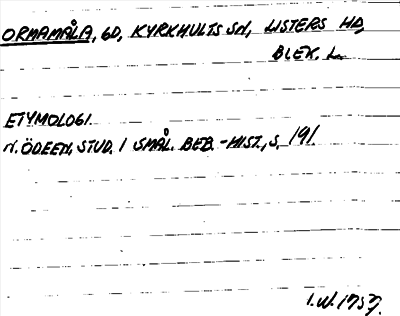 ORMAMÅLA, GD, KYRKHULTS SN, LISTERS HD,
BLEK. L.
ETYMOLOGI
N. ÖDEEN, STUD. I SMÅL. BEB.-HIST., S. 191.
I.W. 1957.